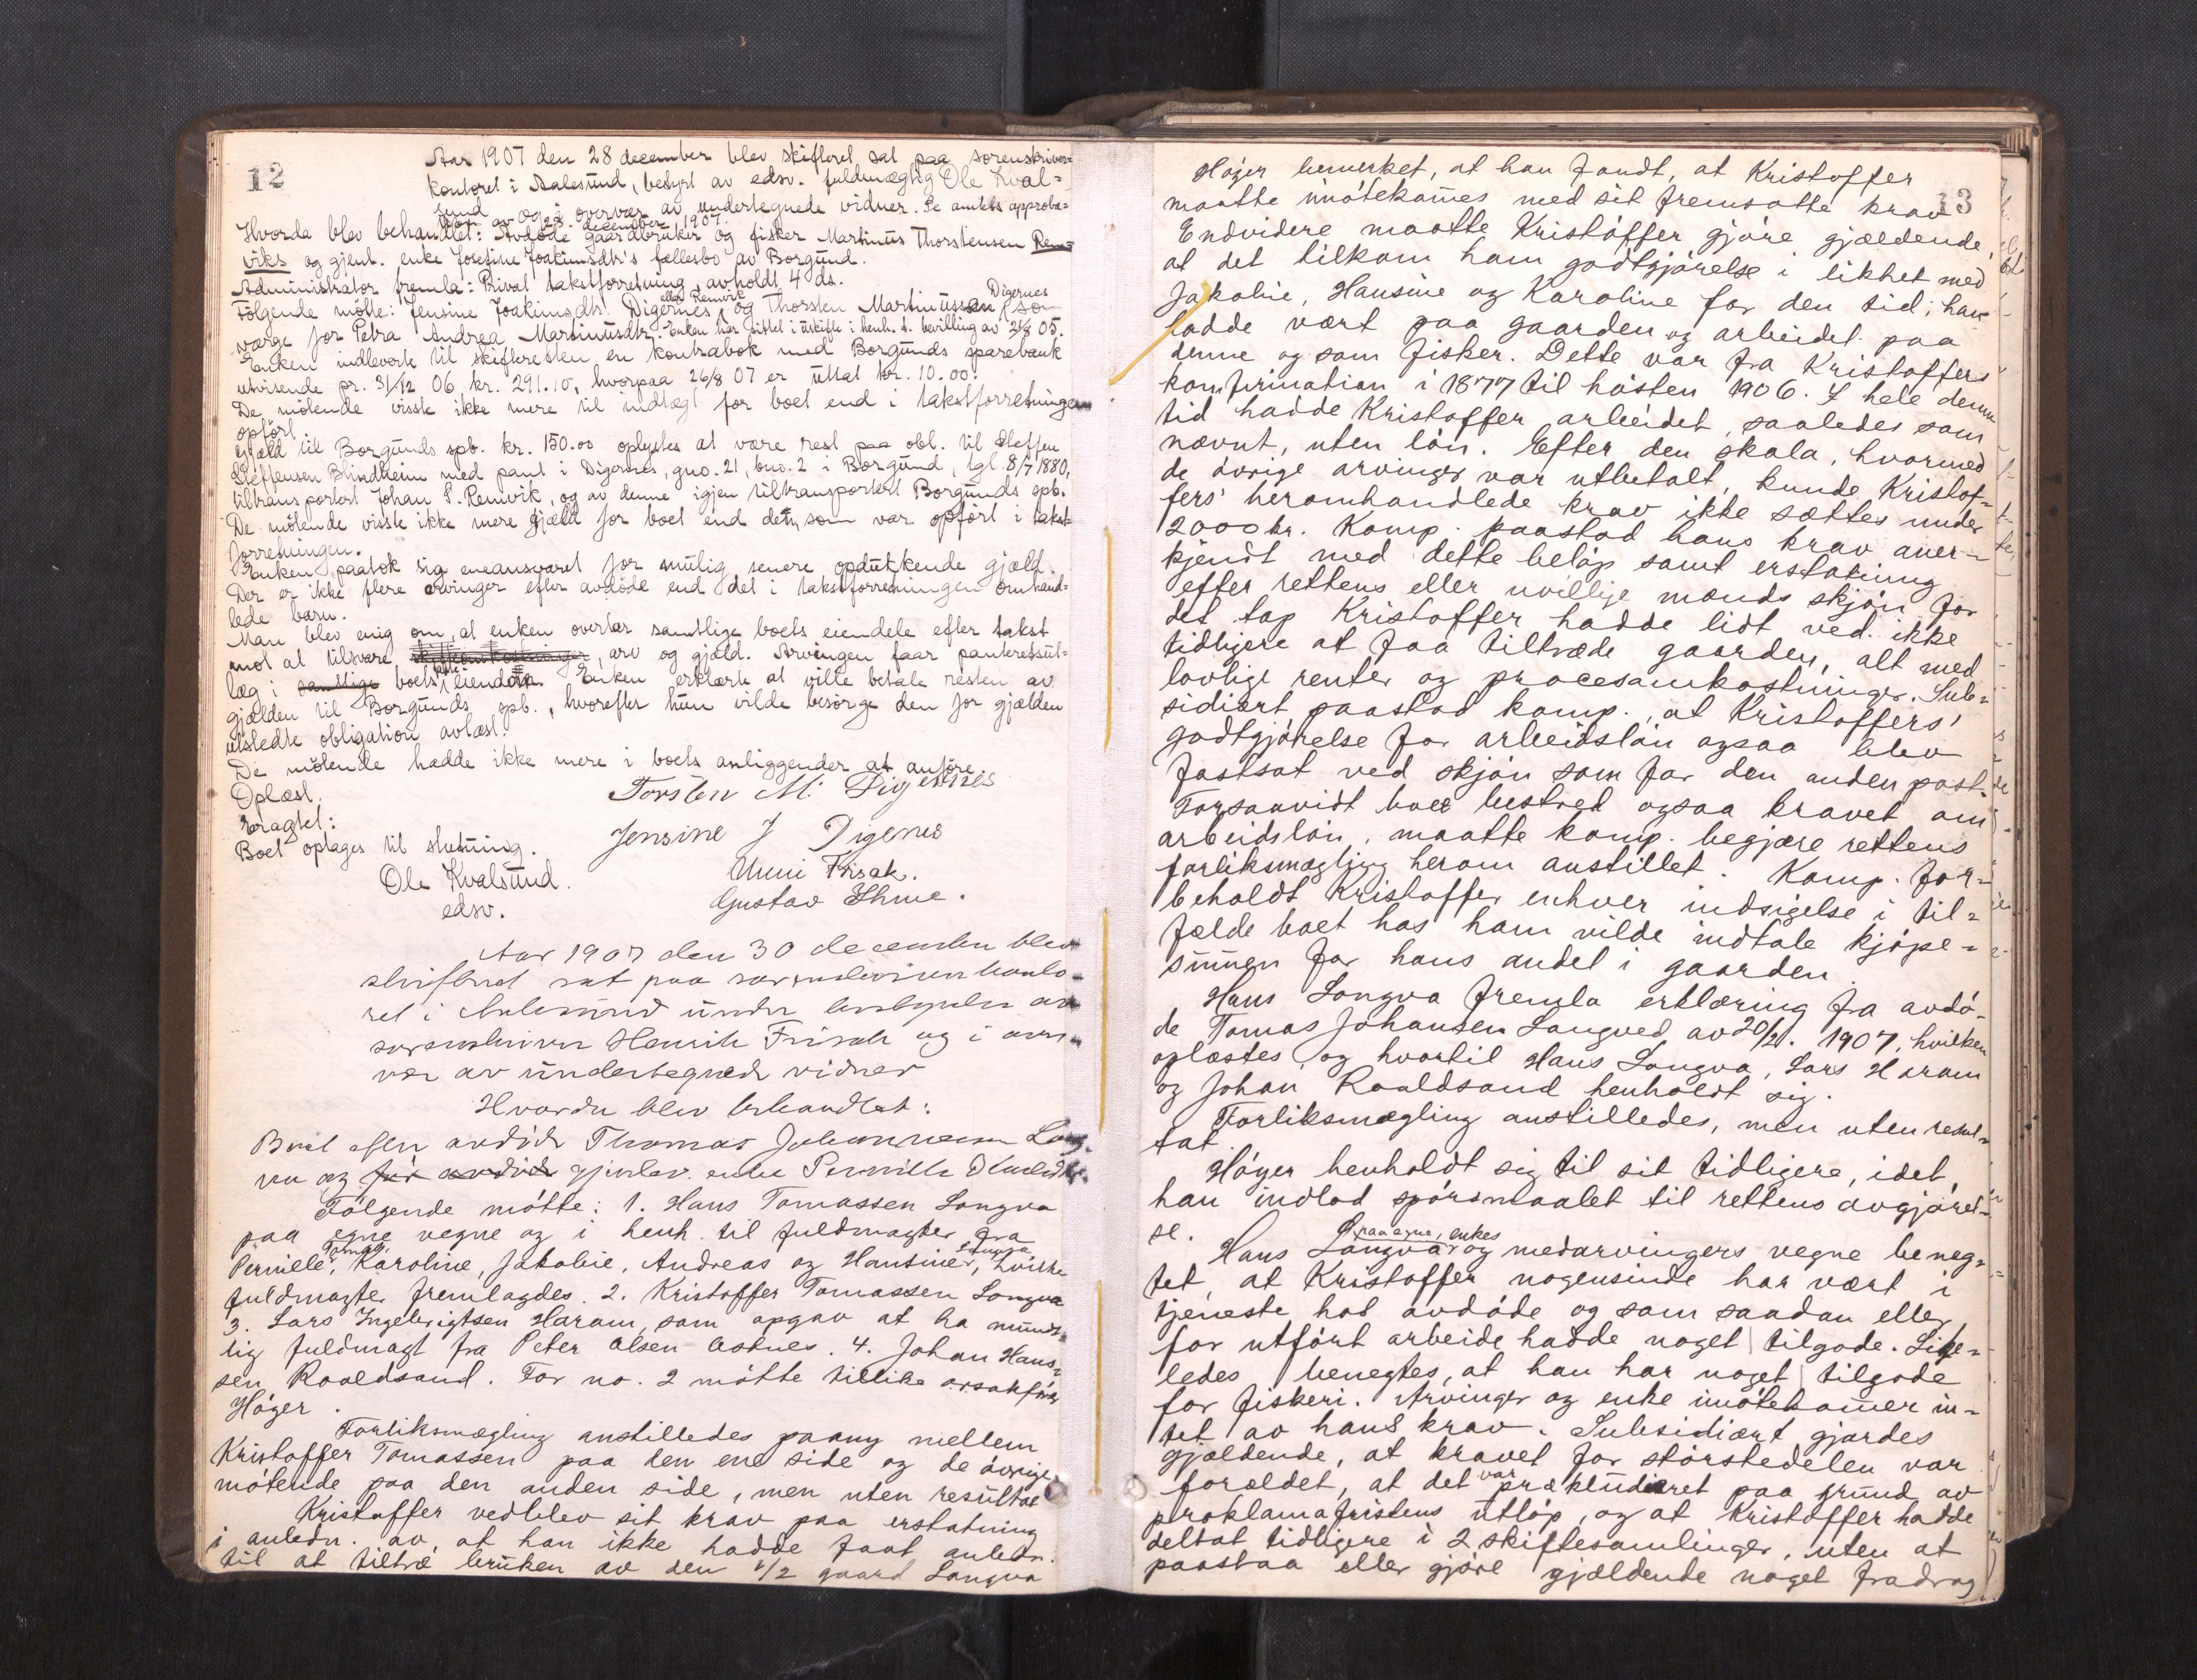 12
Aar 1907 den 28 december blev skifteret sat paa sorenskriver=
kontoret i Aalesund, bestyrt av edsv. fuldmægtig Ole Kval=
sund og i overvær av undertegnede vidner. Se amtets approba=
tion av 28. december 1907.
Hvorda blev behandlet: Avdøde gaardbruker og fisker Martinus Thorstensen Rem=
viks og gjenl. enke Josefine Joakimsdtr's fællesbo av Borgund.
Administrator fremla: Privat takstforretning, avholdt 4 ds.
Følgende møtte: Jensine Joakimsdtr. Digernes, eller Remvik og Thorsten Martinussen Digernes som
værge for Petra Andrea Martinusdtr. Enken har sittet i uskifte i henh. t. bevilling av 21/8 05.
Enken indleverte til skifteretten en kontrabok med Borgunds sparebank
utvisende pr. 31/12 06 kr. 291.10, hvorpaa 26/8 07 er uttat kr. 10.00.
De møtende visste ikke mere til indtægt for boet end i takstforretningen
opført.
Gjæld til Borgunds spb. kr. 150.00 oplystes at være rest paa obl. til Steffen
Steffensen Blindheim med pant i Digernes, gno. 21, bno. 2 i Borgund, tgl. 8/7 1880,
tiltransportert Johan P. Remvik, og av denne igjen tiltransportert Borgunds spb.
De møtende visste ikke mere gjæld for boet end den, som var opført i takst=
forretningen.
Enken paatok sig eneansvaret for mulig senere opdukkende gjæld.
Der er ikke flere arvinger efter avdøde end det i takstforretningen omhand=
lede barn.
Man blev enig om, at enken overtar samtlige boets eiendele efter takst
mot at tilsvare skifteomkostninger, arv og gjæld. Arvingen faar panteretsut=
læg i samtlige boets faste eiendom. Enken erklærte at ville betale resten av
gjælden til Borgunds spb., hvorefter hun vilde besørge den for gjælden
utstedte obligation avlæst.
De møtende hadde ikke mere i boets anliggender at anføre.
Oplæst.
Torsten M. Digernes
Eragtet:
Jensine J Digernes
Boet optages til slutning.
Ole Kvalsund.
edsv.
Unni Frisak.
Gustav Thime.
Aar 1907 den 30 december blev
skifteret sat paa sorenskriverkonto=
ret i Aalesund under bestyrelse av
sorenskriver Henrik Frisak og i over=
vær av undertegnede vidner
Hvorda blev behandlet:
Boet efter avdøde Thomas Johannesen Long=
va og før avdøde gjenlev. enke Pernille
Følgende møtte: 1. Hans Tomassen Longva
paa egne vegne og i henh. til fuldmagter fra
Pernille, Tomas, Karoline, Jakobie, Andreas og Hansine Longva, hvilke
fuldmagter fremlagdes. 2. Kristoffer Tomassen Longva
3. Lars Ingebrigtsen Haram, som opgav at ha mundt=
lig fuldmagt fra Peter Olsen Astnes. 4. Johan Hans=
sen Roaldsand. For no. 2 møtte tillike o.r.sakfører
Høyer.
Forliksmægling anstilledes paany mellem
Kristoffer Tomassen paa den ene side og de øvrige
møtende paa den anden side, men uten resultat
Kristoffer vedblev sit krav paa erstatning
i anledn. av, at han ikke hadde faat anledn.
til at tiltræ bruken av den 1/2 gaard Longva
13
Høyer bemerket, at han fandt, at Kristoffer
maatte imøtekommes med sit fremsatte krav
Endvidere maatte Kristoffer gjøre gjældende,
at det tilkom ham godtgjørelse i likhet med
Jakobie, Hansine og Karoline for den tid, han
hadde vært paa gaarden og arbeidet paa
denne og som fisker. Dette var fra Kristoffers
konfirmation i 1877 til høsten 1906. I hele denne
tid hadde Kristoffer arbeidet, saaledes som
nævnt, uten løn. Efter den skala, hvormed
de øvrige arvinger var utbetalt, kunde Kristof=
fers' heromhandlede krav ikke sættes under
2000 kr. Komp. paastod hans krav aner=
kjendt med dette beløp samt erstatning
efter rettens eller uvillige mænds skjøn for
det tap Kristoffer hadde lidt ved ikke
tidligere at faa tiltræde gaarden, alt med
lovlige renter og procesomkostninger. Sub=
sidiært paastod komp., at Kristoffers'
godtgjørelse for arbeidsløn ogsaa blev
fastsat ved skjøn som for den anden post.
Forsaavidt boet bestred ogsaa kravet om
arbeidsløn, maatte komp. begjære rettens
forliksmægling herom anstillet. Komp. for=
beholdt Kristoffer enhver indsigelse i til=
fælde boet hos ham vilde indtale kjøpe=
summen for hans andel i gaarden.
Hans Longva fremla erklæring fra avdø=
de Tomas Johansen Langved av 20/2. 1907, hvilken
oplæstes, og hvortil Hans Longva, Lars Haram
og Johan Roaldsand henholdt sig.
Forliksmægling anstilledes, men uten resul=
tat
Høyer henholdt sig til sit tidligere, idet
han indlod spørsmaalet til rettens avgjørel=
se.
Hans Longva paa egne, enkes og medarvingers vegne beneg=
tet, at Kristoffer nogensinde har vært i
tjeneste hos avdøde og som saadan eller
for utført arbeide hadde noget tilgode. Like=
ledes benegtes, at han har noget tilgode
for fiskeri. Arvinger og enke imøtekommer in=
tet av hans krav. Subsidiært gjordes
gjældende, at kravet for størstedelen var
forældet, at det var prækludieret paa grund av
proklamafristens utløp, og at Kristoffer hadde
deltat tidligere i 2 skiftesamlinger, uten at
paastaa eller gjøre gjældende noget fradrag